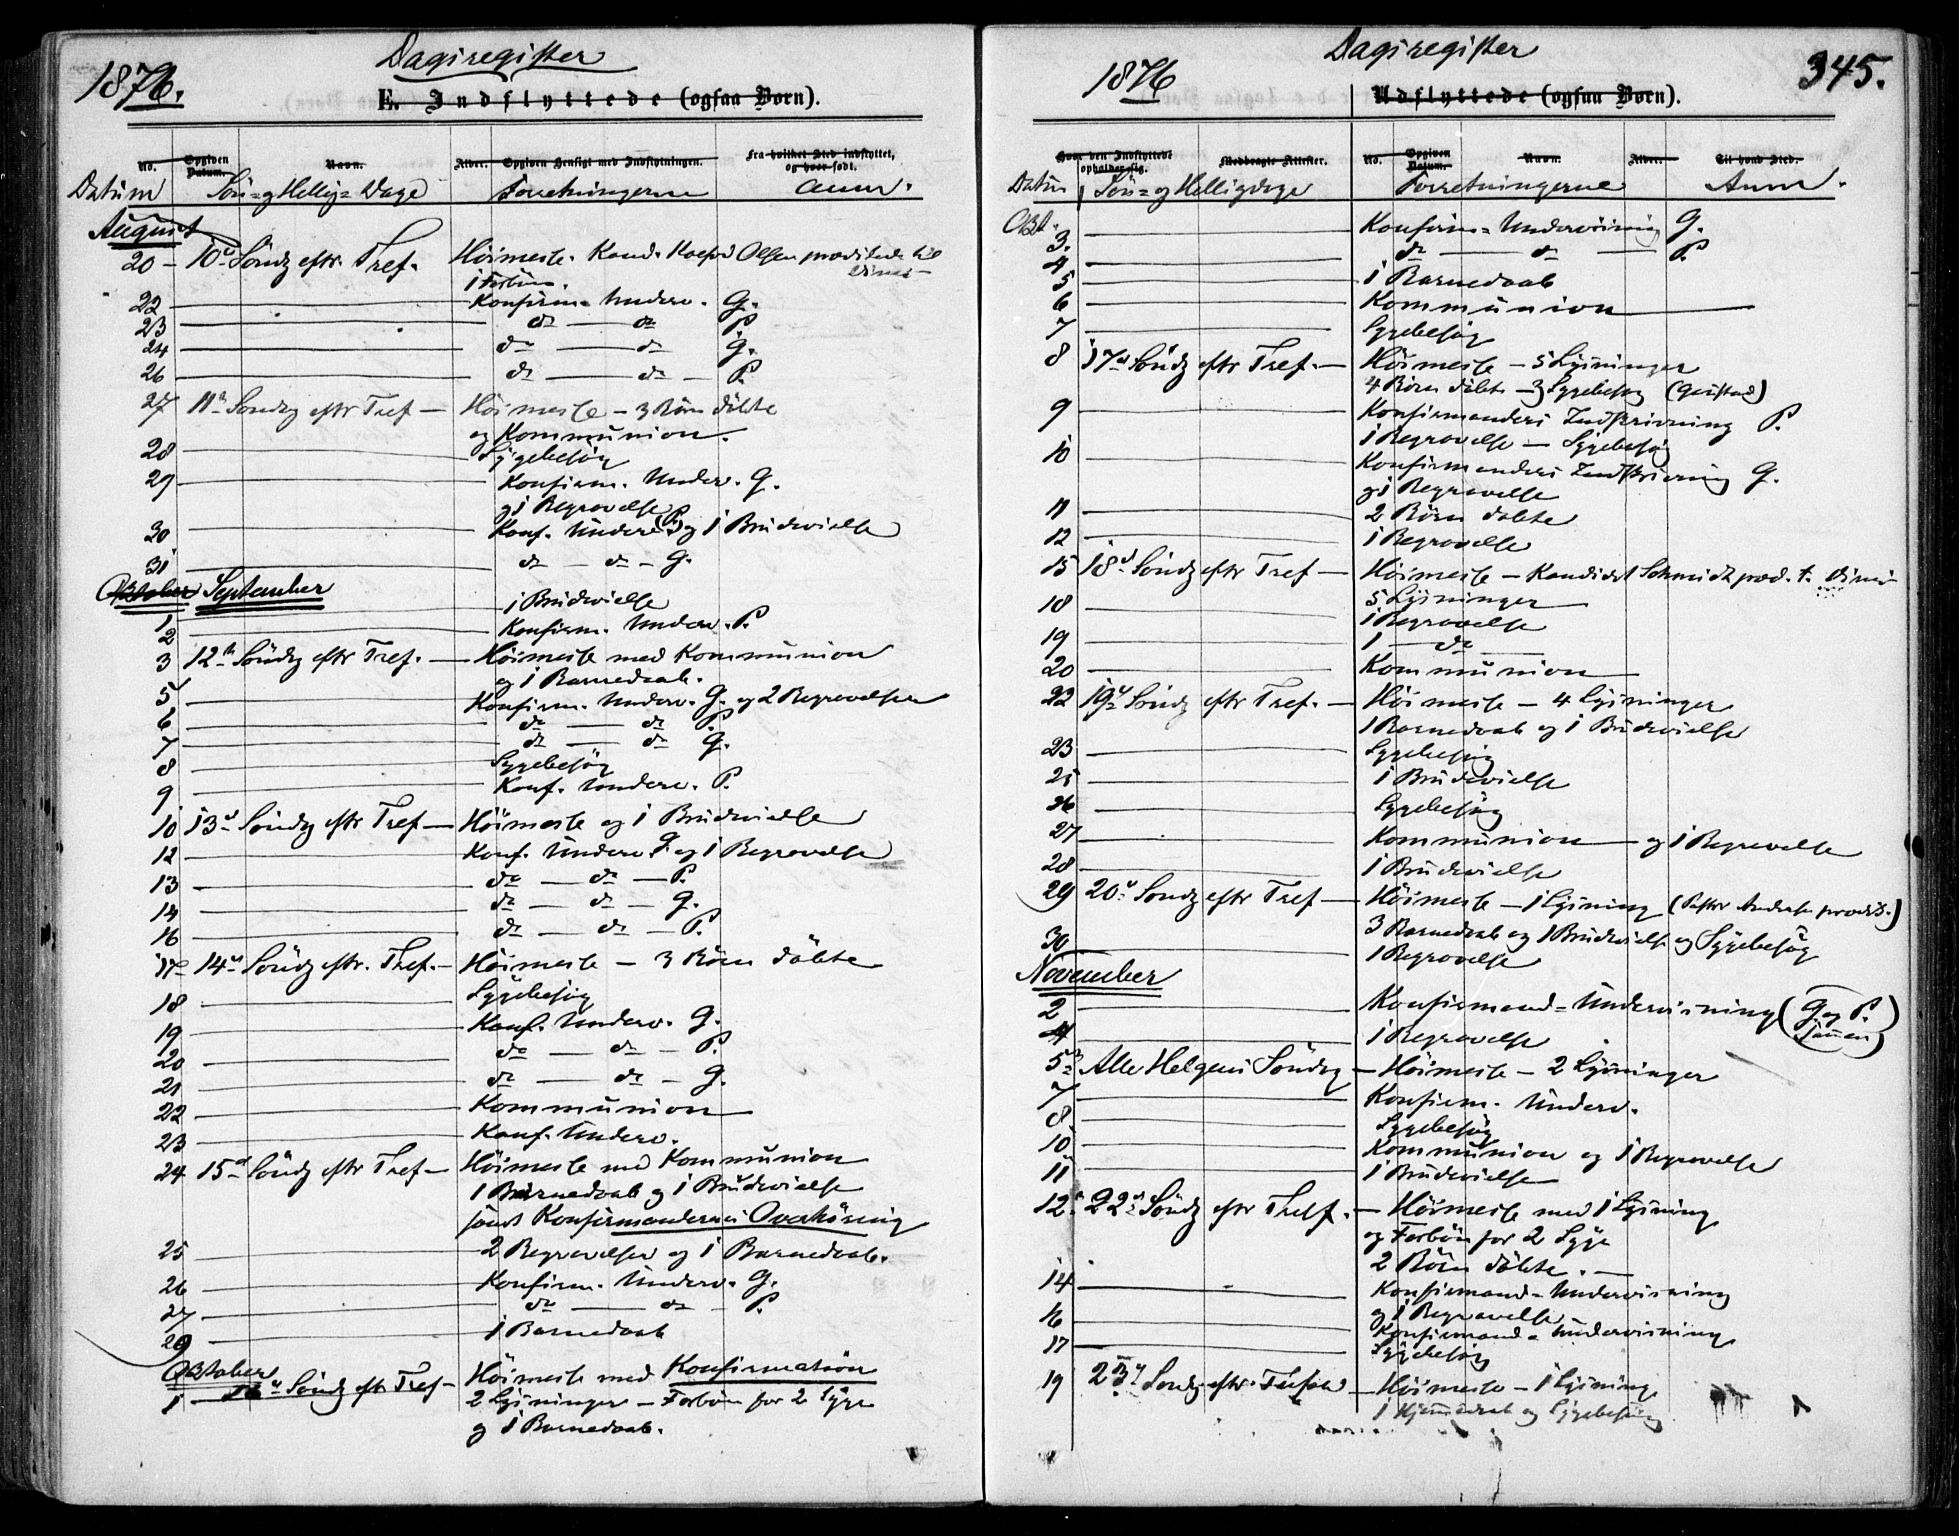 1876.
Dagsregister
E. Indflyttede (ogsaa Børn).
No.
Opgiven Datum.
Navn.
Alder.
Opgiven Hensigt med Indflytningen.
Fra hvilket Sted indflyttet, og hvor født.
Datum Søn- og Hellig-Dage Forretningerne Anm.
August
20 – 10de Søndg eftr Tref. Høimesse. Kand. Olsen prædikede til
1 Forbøn.
22 Konfirm. Underv. G.
23 do — do P.
24 do — do G.
26 do — do — P.
27 11te Søndg eftr Tref — Høimesse – 3 Børn døbte
og Kommunion.
28 Sygebesøg
29 Konfirm. Underv. G.
og 1 Begravelse
30 Konf. Underv. (P.) og 1 Brudevielse
31 do — do – G.
Oktober September
1 1 Brudevielse
2 Konfirm. Underv. P.
3 12te Søndg eftr Tref. — Høimesse med Kommunion
og 1 Barnedaab.
5 Konfirm. Underv. G. og 2 Begravelser
6 do — do P.
7 do — do G.
8 Sygebesøg
9 Konf. Underv. P.
10 13de Søndg eftr Tref — Høimesse og 1 Brudevielse
12 Konf. Underv. G. og 1 Begravelse
13 do — do — P.
14 do — do – G.
16 do — do — P.
17 14de Søndg eftr. Tref. — Høimesse – 3 Børn døbte
18 Sygebesøg
19 Konf. Underv. G.
20 do — do – P.
21 do — do – G.
22 Kommunion
23 Konf. Underv.
24 15de Søndg eftr Tref — Høimesse med Kommunion
1 Barnedaab og 1 Brudevielse
samt Konfirmandernes Overhøring
25 2 Begravelser og 1 Barnedaab.
26 Konfirm. Underv. G.
27 do — do – P.
29 1 Barnedaab
Oktober
1 16de Søndg eftr Tref — Høimesse med Konfirmation
2 Lysninger – Forbøn for 2 Syge
og 1 Barnedaab.
1876
Dagsregister
345.
Udflyttede (ogsaa Børn).
Hvor den Indflyttede opholder sig.
Medbragte Attester.
No.
Opgiven Datum.
Navn.
Alder.
Til hvad Sted.
Datum Søn- og Helligdage Forretningerne Anm.
Okt.
3. Konfirm-Undervisning G.
4 do — do — P.
5 1 Barnedaab
6 Kommunion
7 Sygebesøg
8 17de Søndg eftr Tref. — Høimesse – 5 Lysninger
4 Børn døbte – 3 Sygebesøg
9 Konfirmanders Indskrivning P.
1 Begravelse – Sygebesøg
10 Konfirmanders Indskrivning G.
og 1 Begravelse
11 2 Børn døbte
12 1 Begravelse
15 18de Søndg eftr Tref — Høimesse – Kandidat Schmidt præd. t.
5 Lysninger
18 1 Begravelse
19 1 — do —
20 Kommunion
22 19de Søndg eftr Tref. — Høimesse – 4 Lysninger
1 Barnedaab og 1 Brudevielse
23 Sygebesøg
25 1 Brudevielse
26 Sygebesøg
27 Kommunion — og 1 Begravelse
28 1 Brudevielse
29 20de Søndg eftr Tref — Høimesse – 1 Lysning
3 Barnedaab og 1 Brudevielse og Sygebesøg
30 1 Begravelse
November
2 Konfirmand-Undervisning (G. og P. sammen)
4 1 Begravelse
5 Alle Helgens Søndag — Høimesse – 2 Lysninger
7 Konfirm. Underv.
8 Sygebesøg
10 Kommunion og 1 Begravelse
11 1 Brudevielse
12 22de Søndg eftr Tref. — Høimesse med 1 Lysning
og Forbøn for 2 Syge
2 Børn døbte.
14 Konfirmand-Undervisning
og 1 Begravelse
16 Konfirmand-Undervisning
17 Sygebesøg
19 23de Søndg eftr — Høimesse – 1 Lysning
1 Hjemmedaab og Sygebesøg